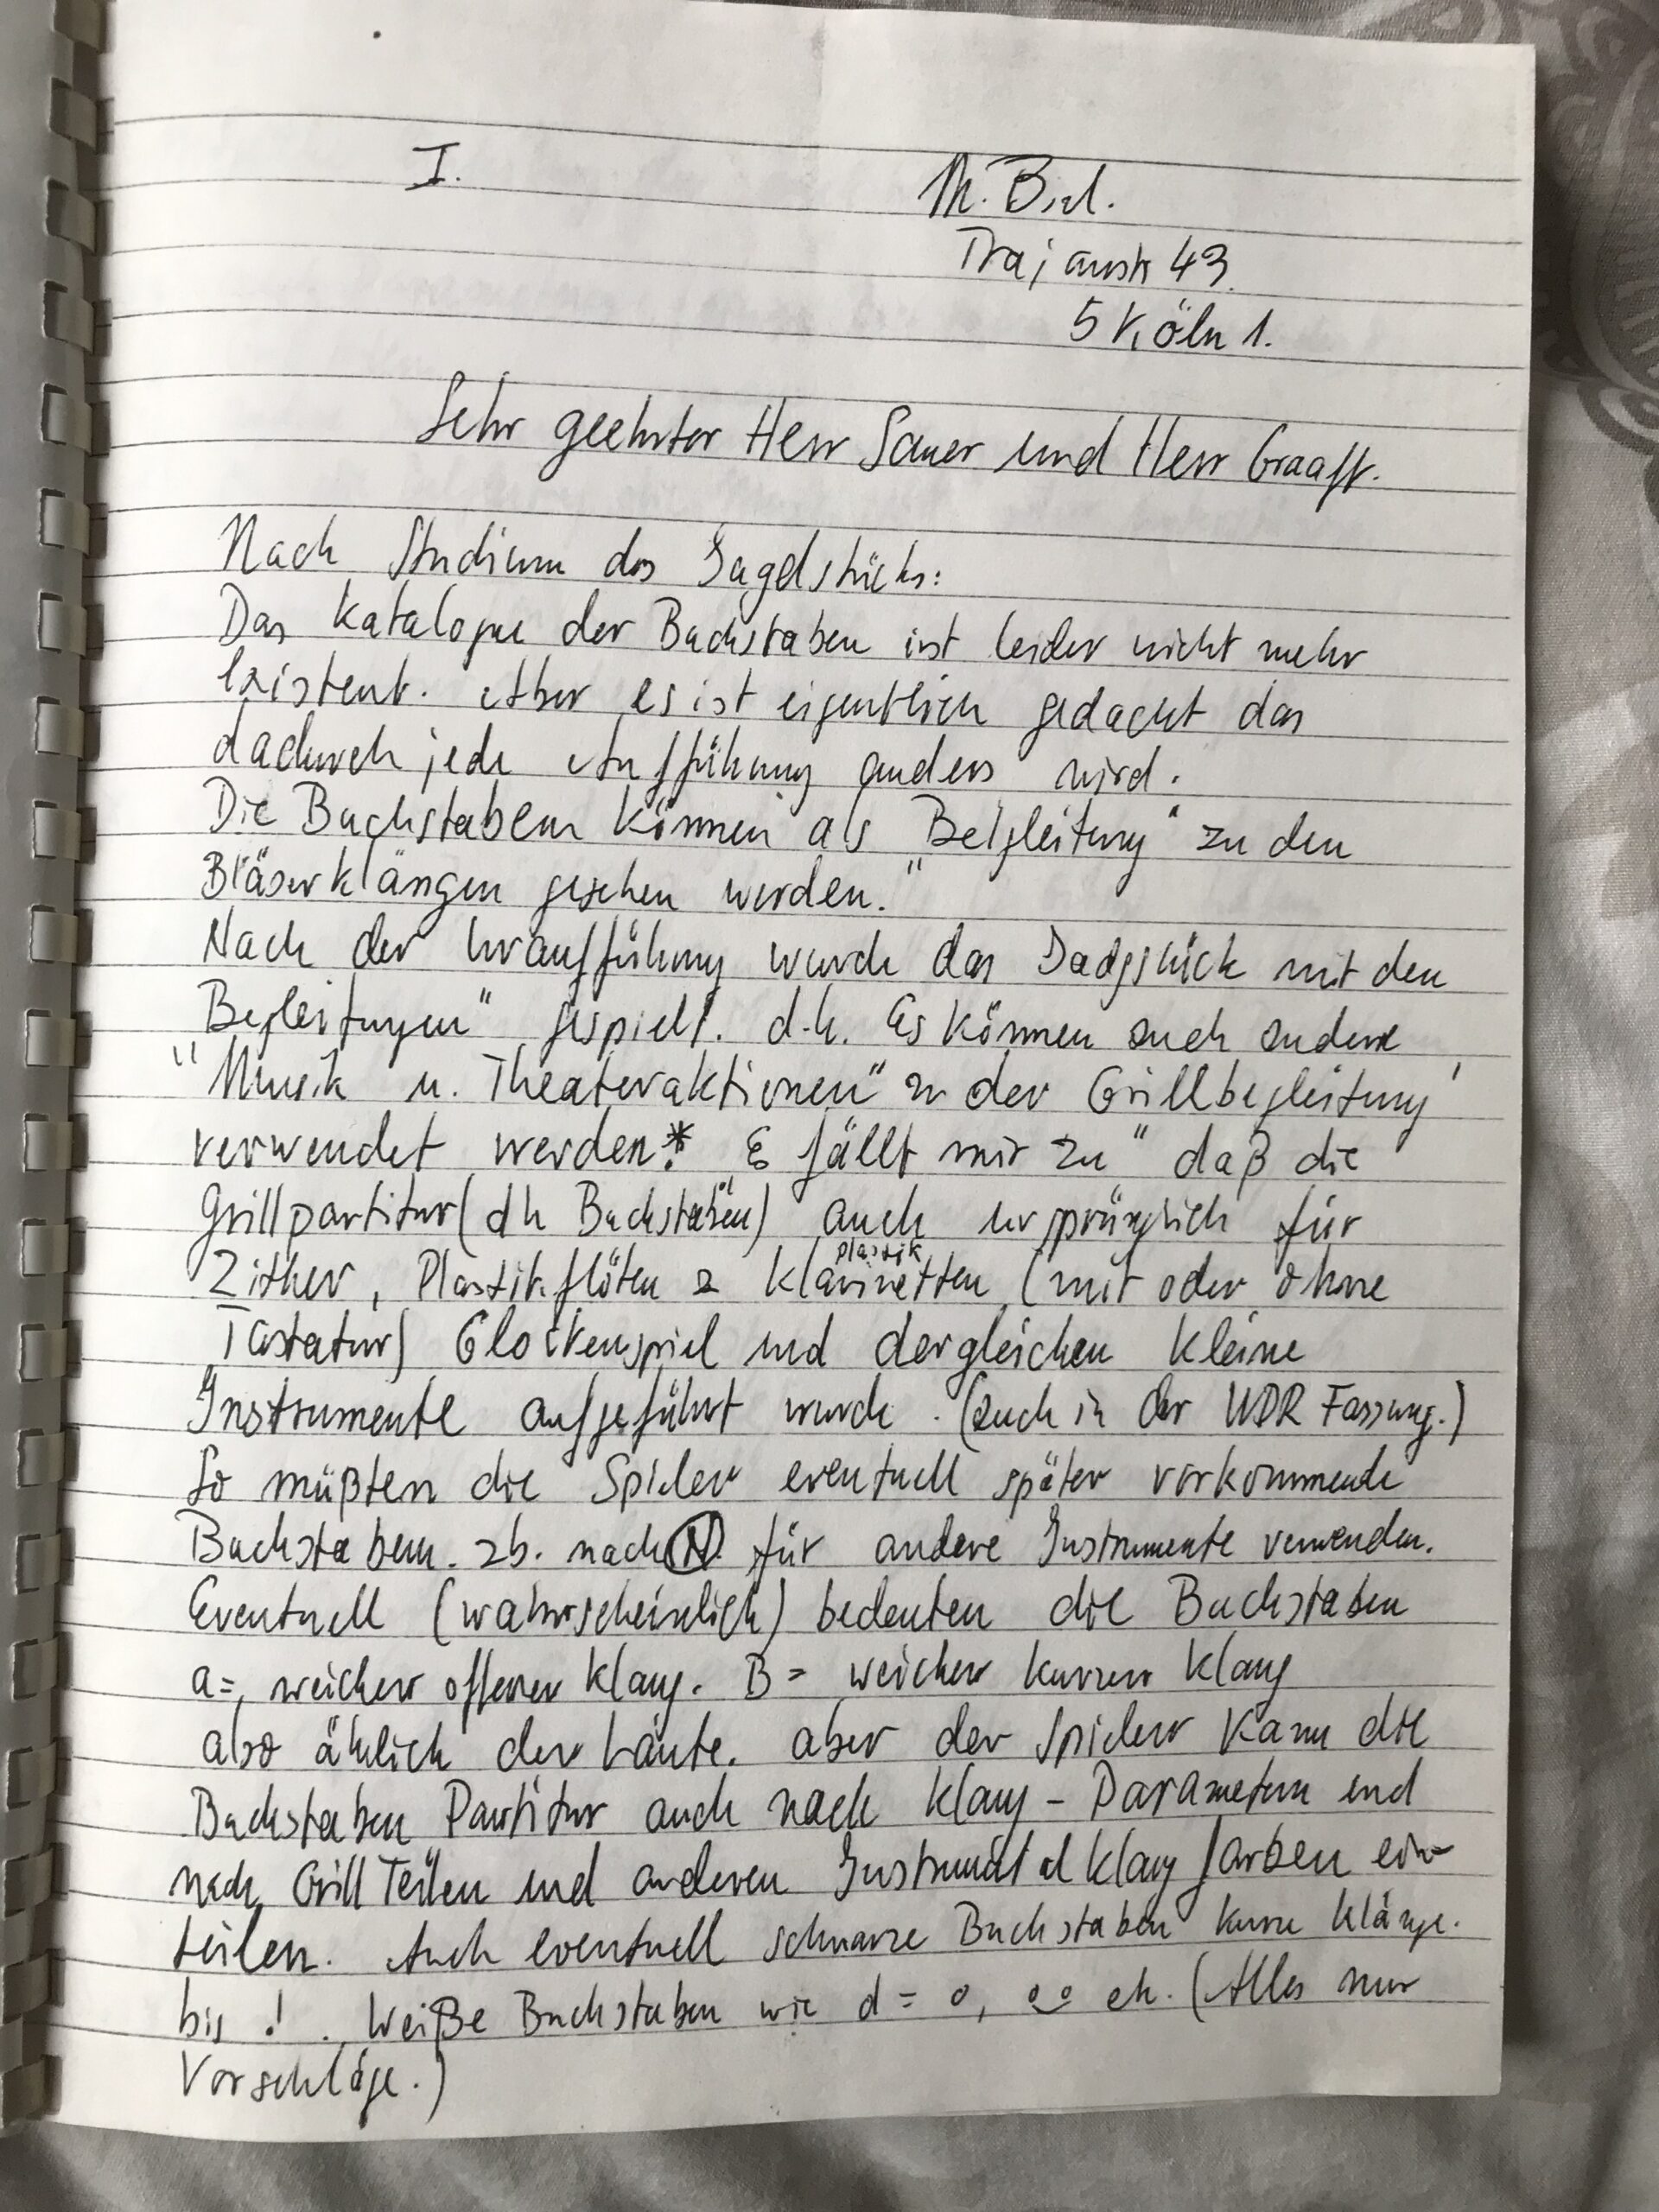 I.
M. Biel.
Trajanstr 43.
5 Köln 1.
Sehr geehrter Herr Sauer und Herr Graaff.
Nach Studium des Jagdstücks:
Das Katalogue der Buchstaben ist leider nicht mehr
existent. Aber es ist eigentlich gedacht das
dadurch jede Aufführung anders wird.
Die Buchstaben können als "Begleitung" zu den
Bläserklängen gesehen werden."
Nach der Uraufführung wurde das Jadgstück mit den
Begleitungen" gespielt. d.h. Es können auch andere
"Musik u. Theateraktionen" zu der Grillbegleitung
verwendet werden.* Es fällt mir zu" daß die
Grillpartitur (dh Buchstaben) auch ursprünglich für
Zither, Plastikflöten & plastik Klarinetten (mit oder ohne
Tastatur) Glockenspiel und dergleichen kleine
Instrumente aufgeführt wurde. (auch in der WDR Fassung.)
So müßten die Spieler eventuell später vorkommende
Buchstaben. zb. nach N. für andere Instrumente verwenden.
Eventuell (wahrscheinlich) bedeuten die Buchstaben
a=, weicher offener Klang. B= weicher kurzer Klang
also ählich der Laute. aber der Spieler kann die
Buchstaben Partitur auch nach Klang-Parametern und
nach Grill Teilen und anderen Instrumentalklangfarben ein-
teilen. Auch eventuell schwarze Buchstaben kurze Klänge.
bis ! . Weiße Buchstaben wie d = o, o‿o etc. (Alles nur
Vorschläge.)